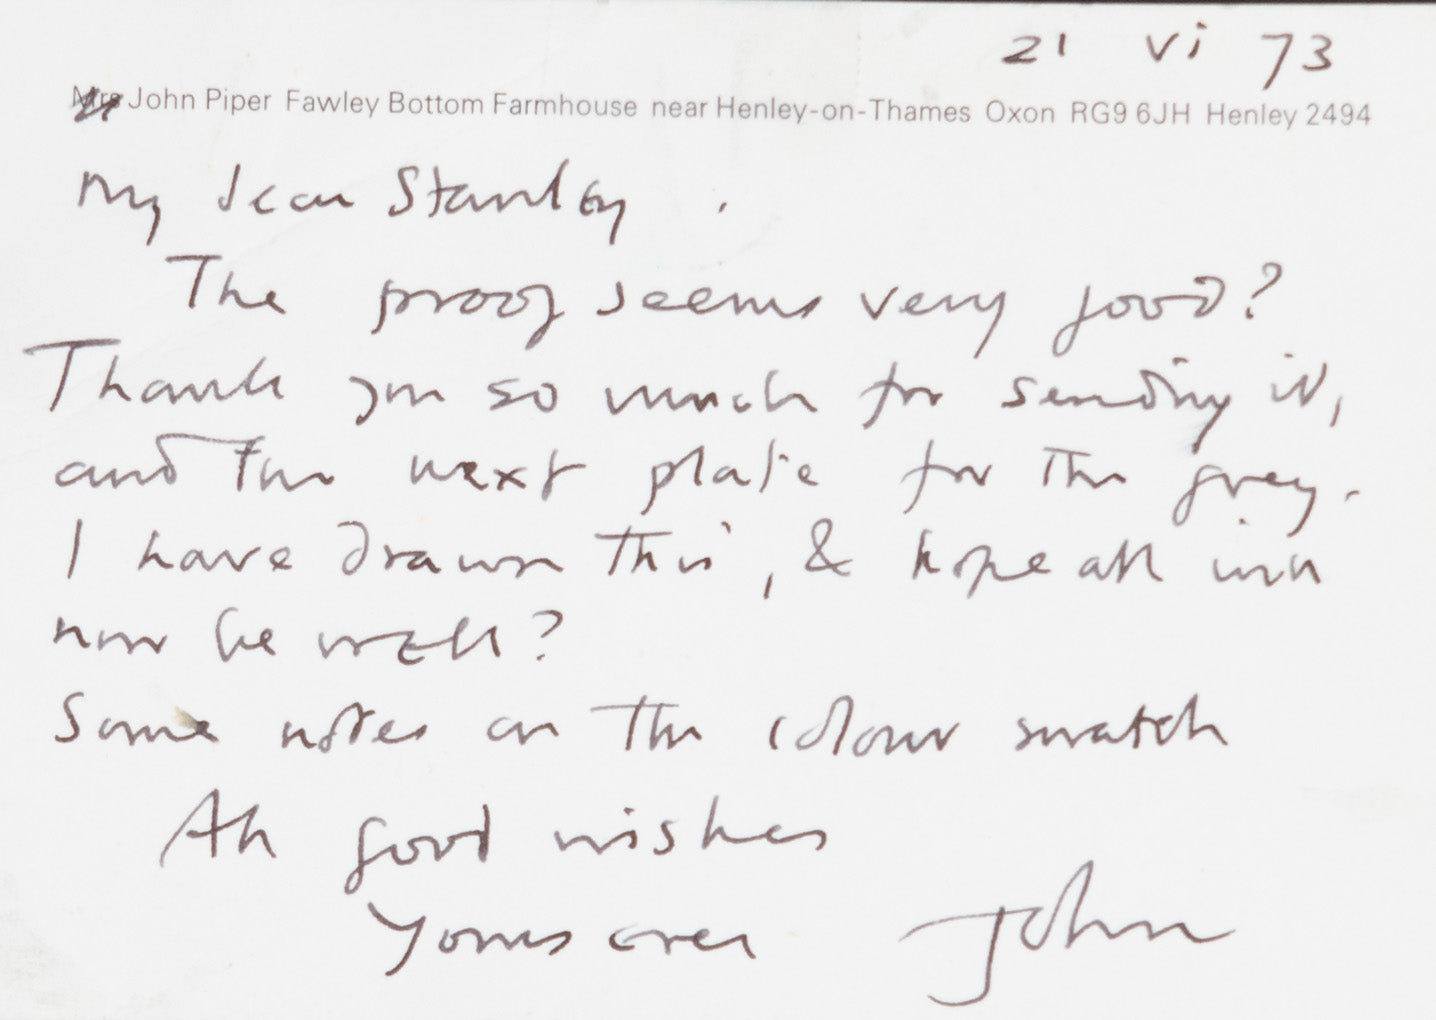 21 vi 73
Mrs John Piper Fawley Bottom Farmhouse near Henley-on-Thames Oxon RG9 6JH Henley 2494
My dear Stanley
The proof seems very good?
Thank you so much for sending it,
and the next plate for the grey.
I have drawn this, & hope all will
now be well?
Some notes on the colour swatch
All good wishes
Yours ever John